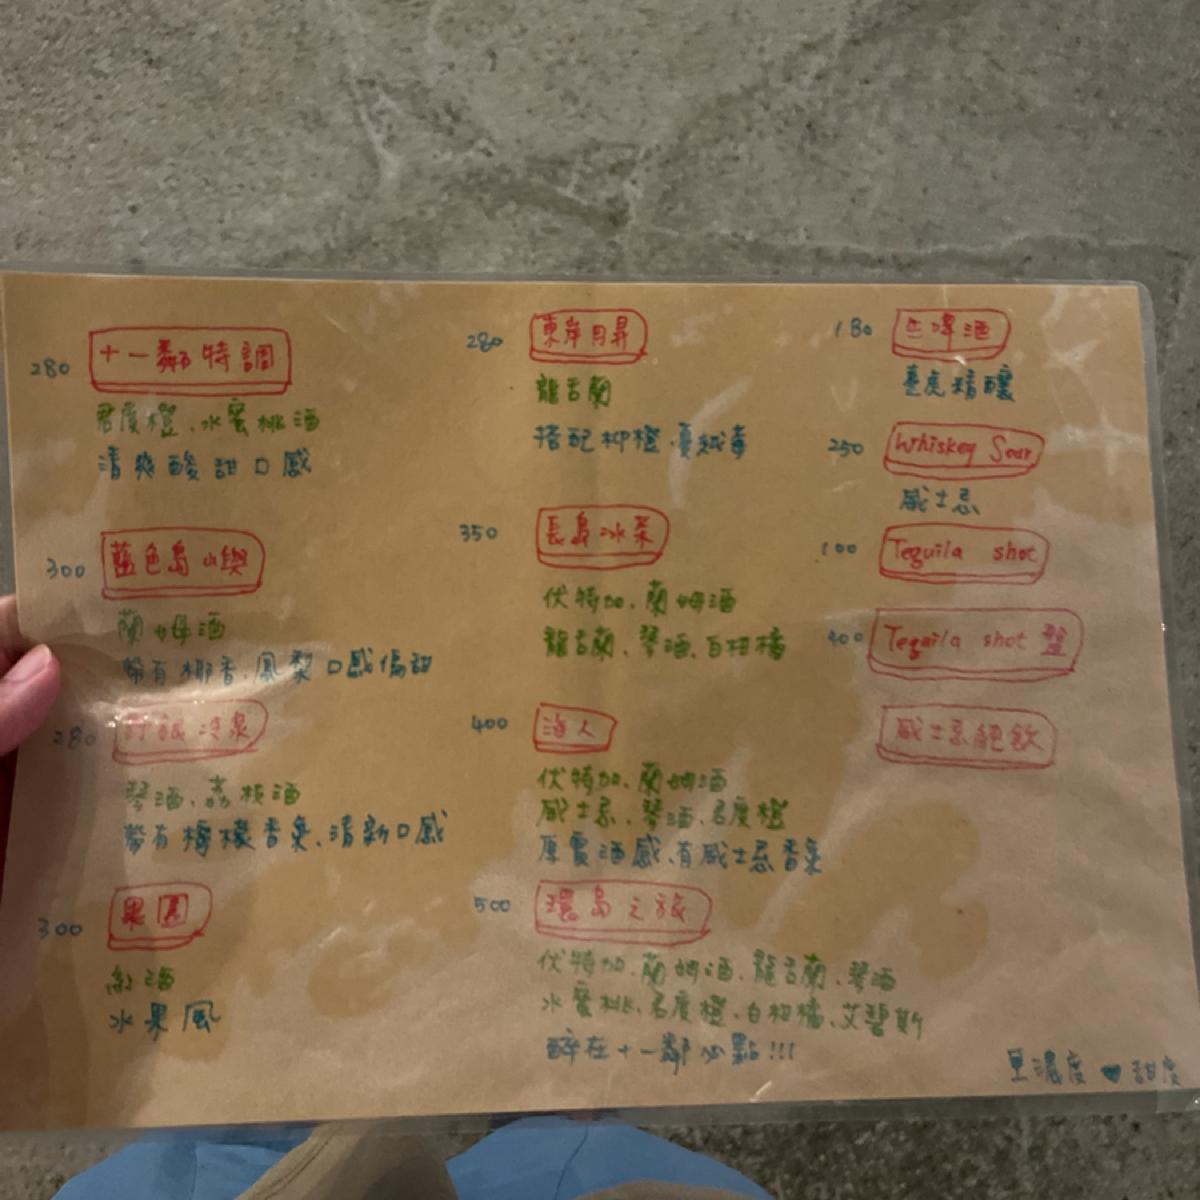 280 十一鄰特調
君度橙、水蜜桃酒
清爽酸甜口感
300 藍色島嶼
蘭姆酒
帶有椰香、鳳梨口感偏甜
280 冷泉
琴酒、荔枝酒
帶有檸檬香氣、清新口感
300 果園
紅酒
水果風
280 東岸月昇
龍舌蘭
搭配柳橙、蔓越莓
350 長島冰茶
伏特加、蘭姆酒
龍舌蘭、琴酒、白柑橘
400 海人
伏特加、蘭姆酒
威士忌、琴酒、君度橙
厚實酒感、有威士忌香氣
500 環島之旅
伏特加、蘭姆酒、龍舌蘭、琴酒
水蜜桃、君度橙、白柑橘、艾碧斯
醉在十一鄰必點!!!
180 生啤酒
臺虎精釀
250 Whiskey Sour
威士忌
100 Tequila shot
400 Tequila shot 盤
威士忌純飲
濃度 ♥ 甜度